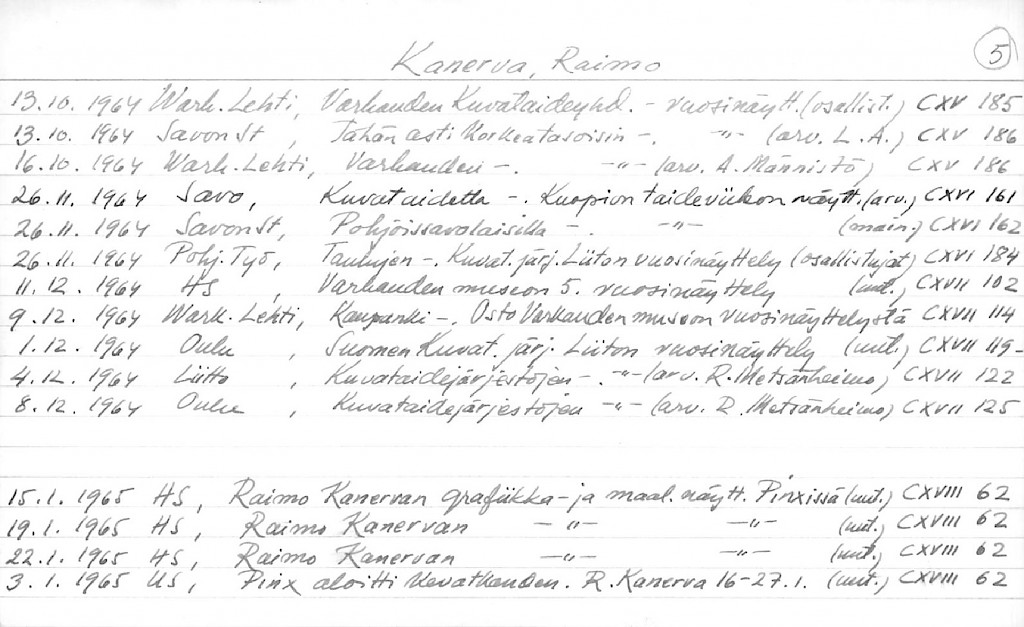 5
Kanerva, Raimo
13.10. 1964 Wark. Lehti, Varkauden Kuvataideyhd. - vuosinäytt. (osallist.) CXV 185
13.10. 1964 Savon St, Tähän asti korkeatasoisin -. -"- (arv. L.A.) CXV 186
16.10. 1964 Wark. Lehti, Varkauden -. -"- (arv. A. Männistö) CXV 186
26.11. 1964 Savo, Kuvataidetta -. Kuopion taideviikon näytt. (arv.) CXVI 161
26.11. 1964 Savon St, Pohjoissavolaisilla -. -"- (main.) CXVI 162
26.11. 1964 Pohj. Työ, Taulujen -. Kuvat. järj. Liiton vuosinäyttely (osallistujat) CXVI 184
11.12. 1964 HS, Varkauden museon 5. vuosinäyttely (uut.) CXVII 102
9.12. 1964 Wark. Lehti, Kaupunki -. Osto Varkauden museon vuosinäyttelystä CXVII 114
1.12. 1964 Oulu, Suomen Kuvat. järj. Liiton vuosinäyttely (uut.) CXVII 119-
4.12. 1964 Liitto, Kuvataidejärjestöjen -. -"- (arv. R. Metsänheimo) CXVII 122
8.12. 1964 Oulu, Kuvataidejärjestöjen -"- (arv. R. Metsänheimo) CXVII 125
15.1. 1965 HS, Raimo Kanervan grafiikka- ja maal. näytt. Pinxissä (uut.) CXVIII 62
19.1. 1965 HS, Raimo Kanervan -"- -"- (uut.) CXVIII 62
22.1. 1965 HS, Raimo Kanervan -"- -"- (uut.) CXVIII 62
3.1. 1965 US, Pinx aloitti kevätkauden. R. Kanerva 16-27.1. (uut.) CXVIII 62